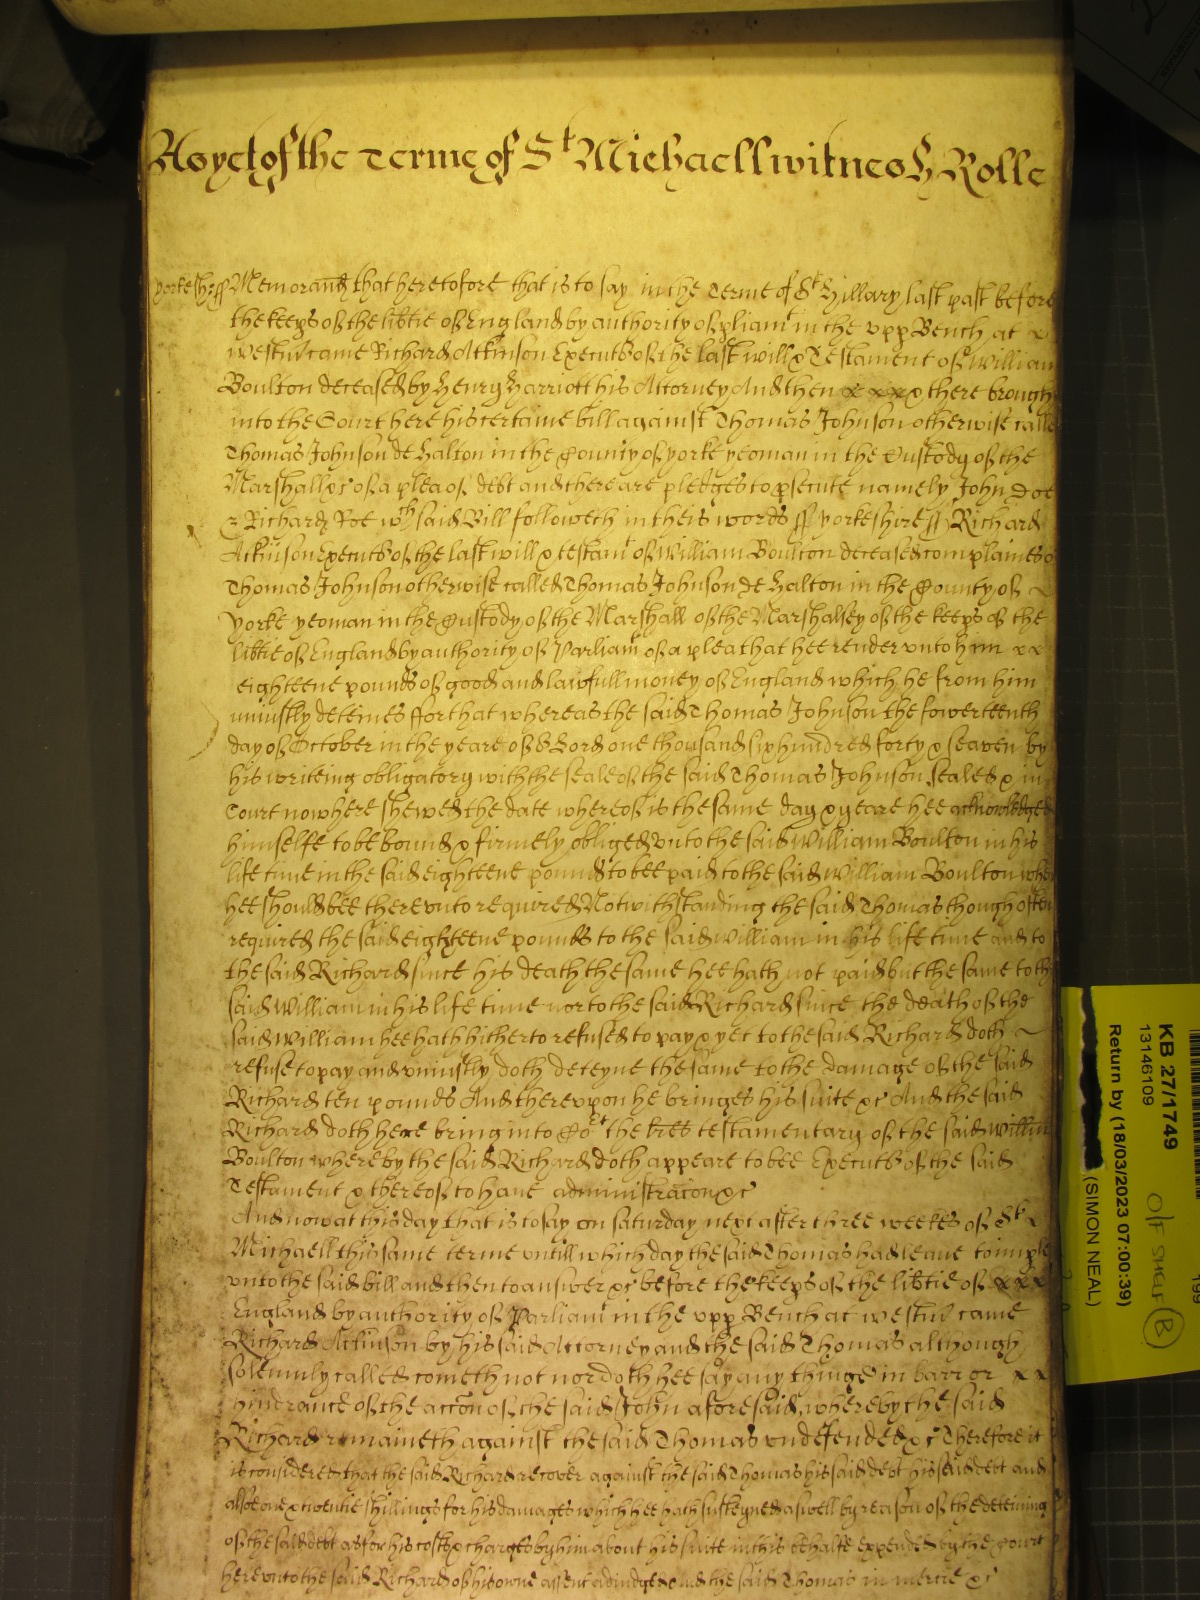 As yet of the Terme of St Michaell witnes H Rolle
Yorkesh: ss Memorand that heretofore that is to say in the Terme of St Hillary last past before
the keeps of the libtie of England by authority of pliamt in the upp Bench at
Westm came Richard Atkinson Executor of the last will & Testament of William
Boulton deceased by Henry Harriott his Attorney And then x x x & there brough
into the Court here his certaine bill against Thomas Johnson otherwise calle
Thomas Johnson de Halton in the County of yorke yeoman in the Custody of the
Marshall &c of a plea of debt and there are pledges to psecute namely John Doe
& Richard Roe wch said Bill followeth in theis words ss yorkeshire ss Richard
Atkinson Executor of the last will & testamt of William Boulton deceased complaines o
Thomas Johnson otherwise called Thomas Johnson de Halton in the County of
Yorke yeoman in the Custody of the Marshall of the Marshalsey of the keeps of the
libtie of England by authority of Parliamt of a plea that hee render unto him x x
eighteene pounds of good and lawfull money of England which he from him
uniustly deteines ffor that whereas the said Thomas Johnson the fowerteenth
day of October in the yeare of or Lord one thousand six hundred forty & seaven by
his writeing obligatory with the seale of the said Thomas Johnson sealed & in
Court now here shewed the date whereof is the same day & yeare hee acknowledged
himselfe to be bound & firmely obliged unto the said William Boulton in his
life time in the said eighteene pounds to bee paid to the said William Boulton whe
hee should bee thereunto required Notwithstanding the said Thomas though often
required the said eighteene pounds to the said William in his life time and to
the said Richard since his death the same hee hath not paid but the same to the
said William in his life time nor to the said Richard since the death of the
said William hee hath hitherto refused to pay & yet to the said Richard doth
refuse to pay and uniustly doth deteyne the same to the damage of the said
Richard ten pounds And thereupon he bringes his suite &c And the said
Richard doth here bring into Cort the lres testamentary of the said Willm
Boulton whereby the said Richard doth appeare to bee Executor of the said
Testament & thereof to have administracon &c
And now at this day that is to say on Saturday next after three weekes of St
Michaell this same terme untill which day the said Thomas had leave to imple
unto the said bill and then to answer &c before the keeps of the libtie of x x x
England by authority of Parliamt in the upp Bench at Westm came
Richard Atkinson by his said Attorney and the said Thomas although
solemnly called cometh not nor doth hee say any thinge in barr or x x
hindrance of the accon of the said John aforesaid, whereby the said
Richard remaineth against the said Thomas undefended &c Therefore it
is considered that the said Richard recover against the said Thomas his said debt his said debt and
alsoe one & twentie shillings for his damages which hee hath susteyned aswell by reason of the deteining
of the said debt as for his costs & charges by him about his suite in this behalfe expended by the Court
here unto the said Richard of his owne assent adiudged And the said Thomas in mercie &c
KB 27/1749
13146109
Return by (18/03/2023 07:00:39)
(SIMON NEAL)
O/F SHELF B